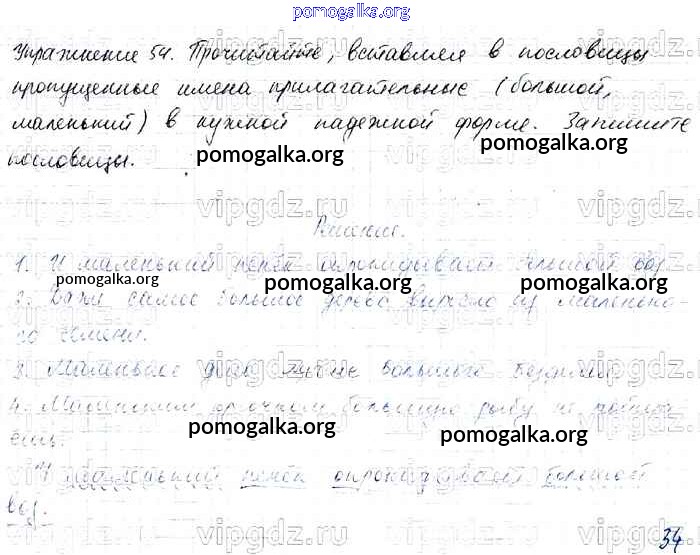 pomogalka.org
Упражнение 54. Прочитайте, вставляя в пословицы
пропущенные имена прилагательные (большой,
маленький) в нужной падежной форме. Запишите
пословицы.
pomogalka.org pomogalka.org
Решение.
1. И маленький пенёк опрокидывает большой воз.
pomogalka.org pomogalka.org pomogalka.org
2. Даже самое большое дерево выросло из маленько-
го семени.
3. Маленькое дело лучше большого безделья.
4. Маленьким крючком большую рыбу не поймаешь.
pomogalka.org pomogalka.org
И маленький пенёк опрокидывает большой
воз.
vipgdz.ru
34